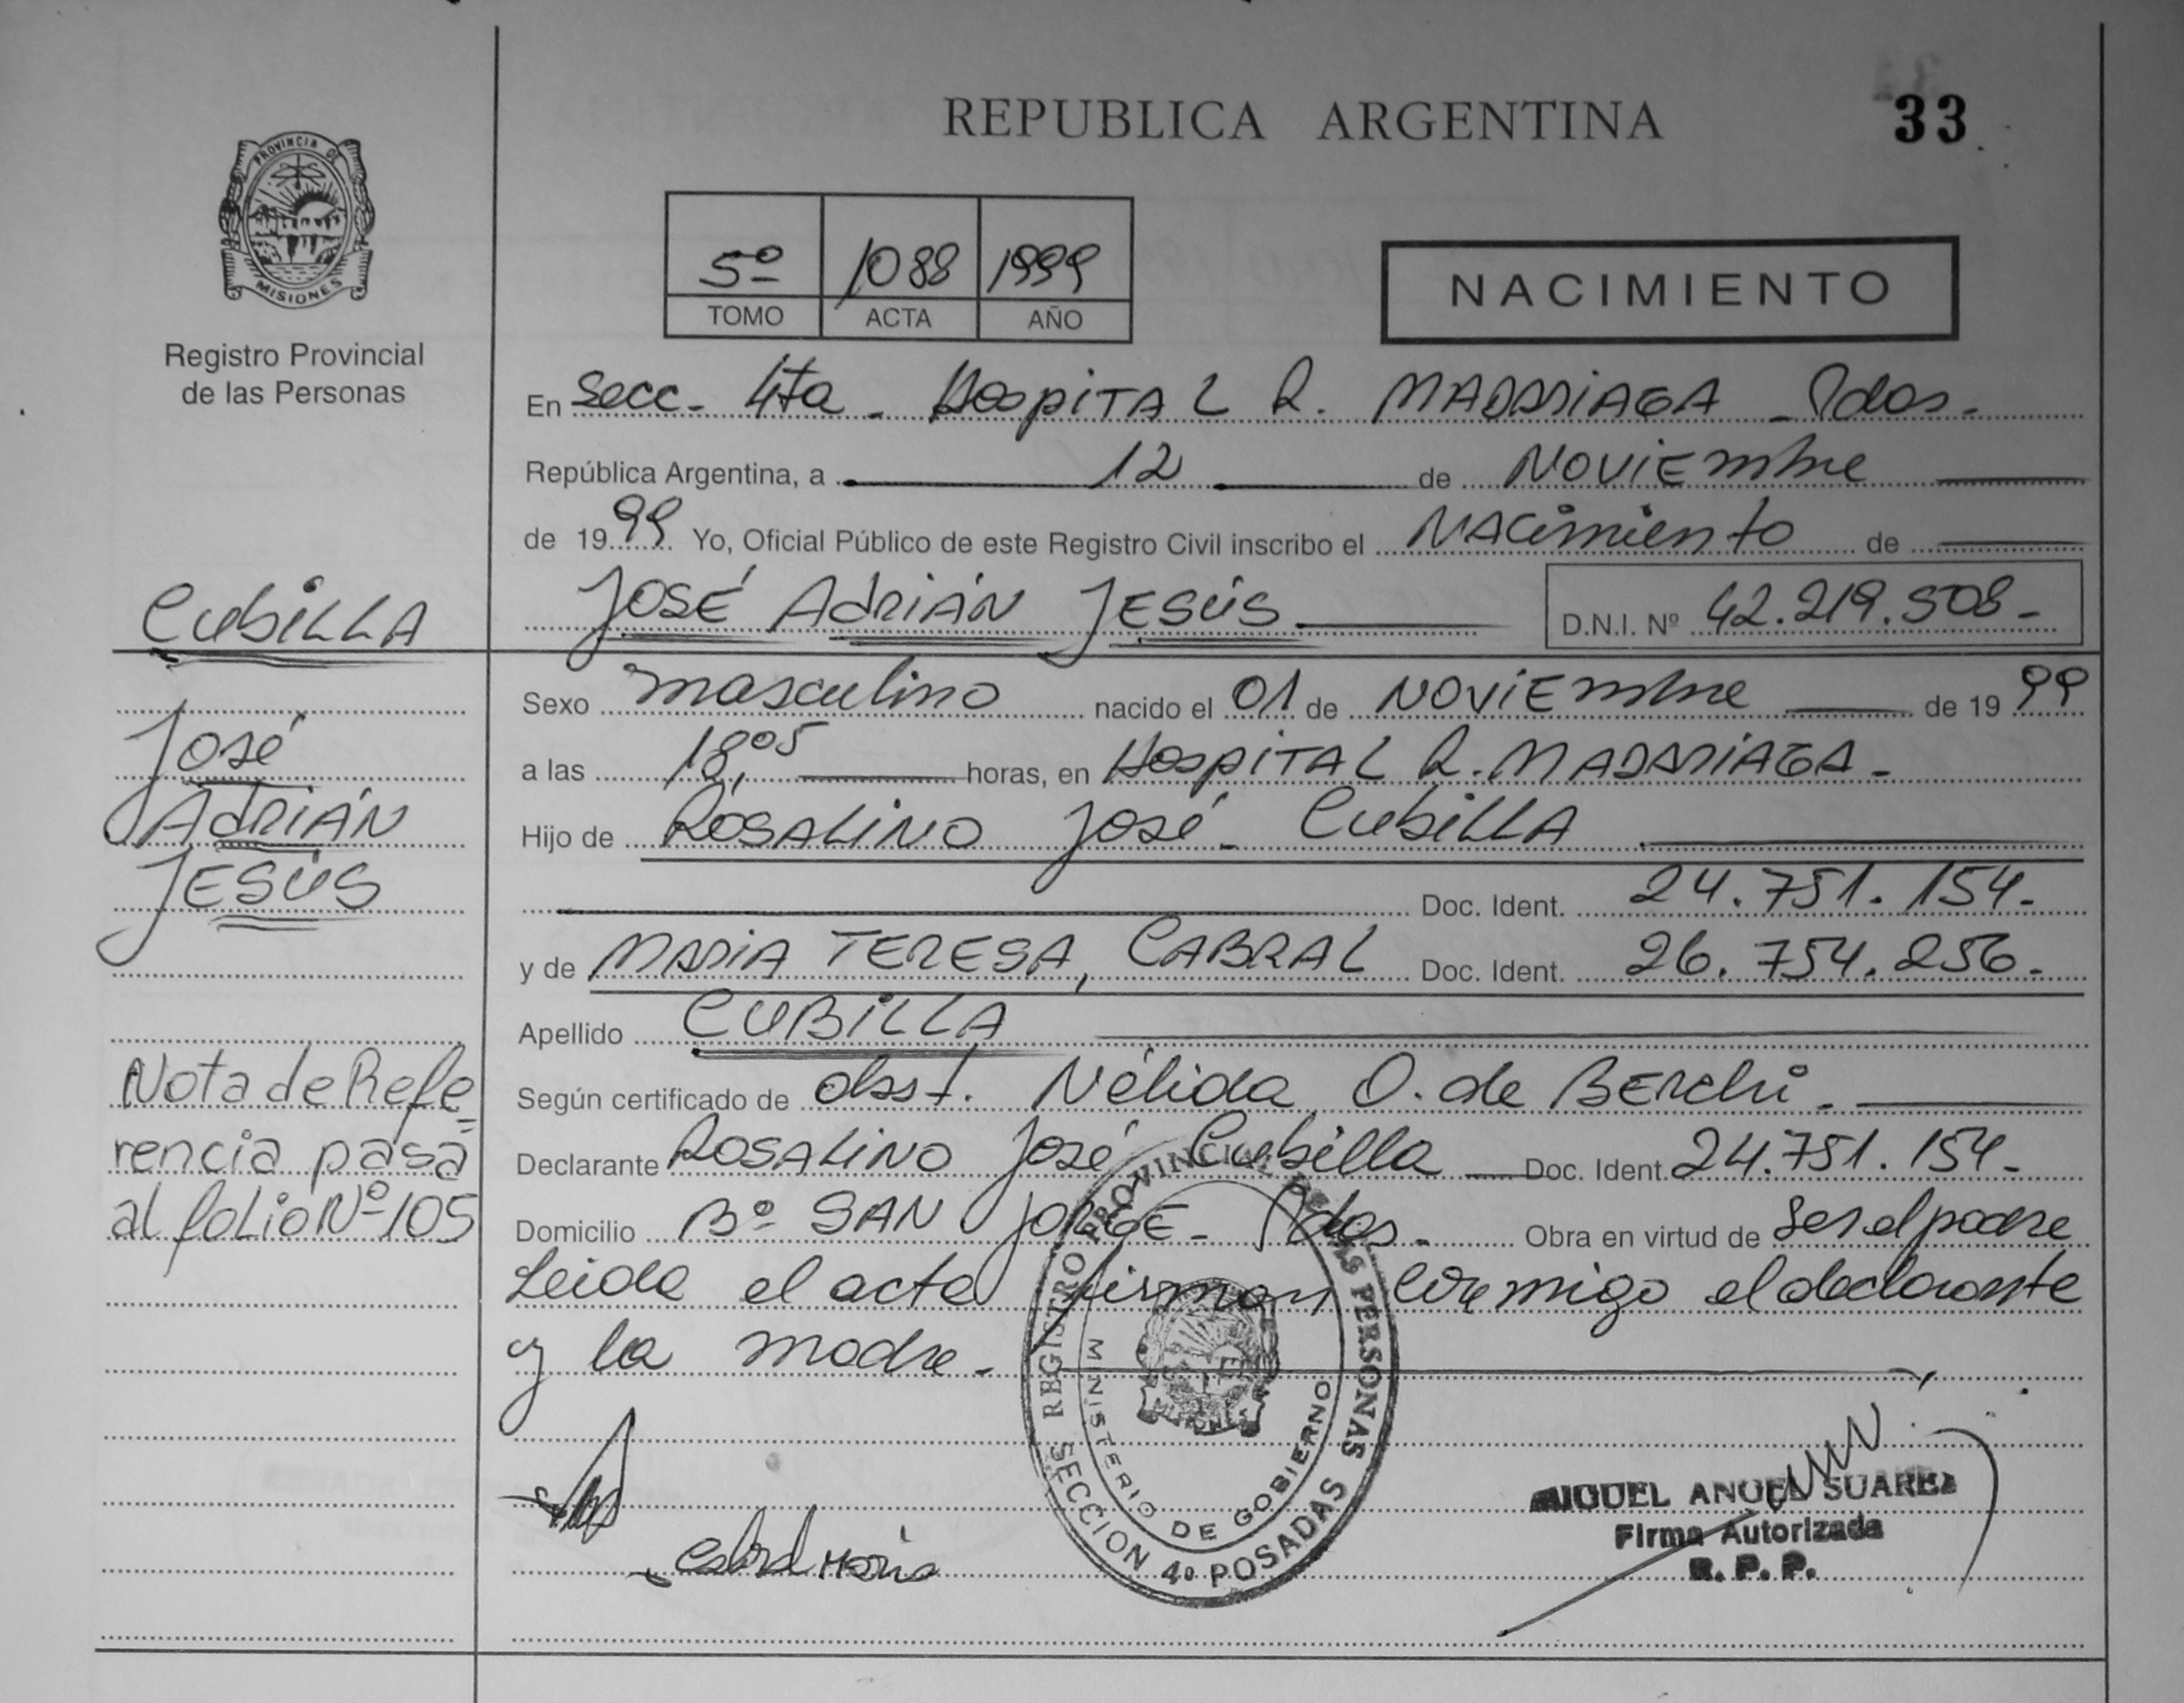 REPUBLICA ARGENTINA
33
PROVINCIA DE
MISIONES
Registro Provincial
de las Personas
5º 1088 1999
TOMO ACTA AÑO
NACIMIENTO
En Secc. 4ta. Hospital R. Madariaga - Pdas.
República Argentina, a 12 de Noviembre
de 1999 Yo, Oficial Público de este Registro Civil inscribo el Nacimiento de
José Adrián Jesús D.N.I. Nº 42.219.508-
Cubilla
José
Adrián
Jesús
Nota de Refe-
rencia pasa
al folio Nº 105
Sexo masculino nacido el 01 de Noviembre de 1999
a las 18,05 horas, en Hospital R. Madariaga-
Hijo de Rosalino José - Cubilla
Doc. Ident. 24.751.154-
y de Maria Teresa, Cabral Doc. Ident. 26.754.256-
Apellido Cubilla
Según certificado de obst. Nélida O. de Berchi-
Declarante Rosalino José Cubilla Doc. Ident. 24.751.154-
Domicilio Bº San Jorge - Pdas. Obra en virtud de ser el padre
Leida el acta firman conmigo el declarante
y la madre-
REGISTRO PROVINCIAL DE LAS PERSONAS
MINISTERIO DE GOBIERNO
SECCION 4º POSADAS
Cabral Maria
MIGUEL ANGEL SUAREZ
Firma Autorizada
R. P. P.